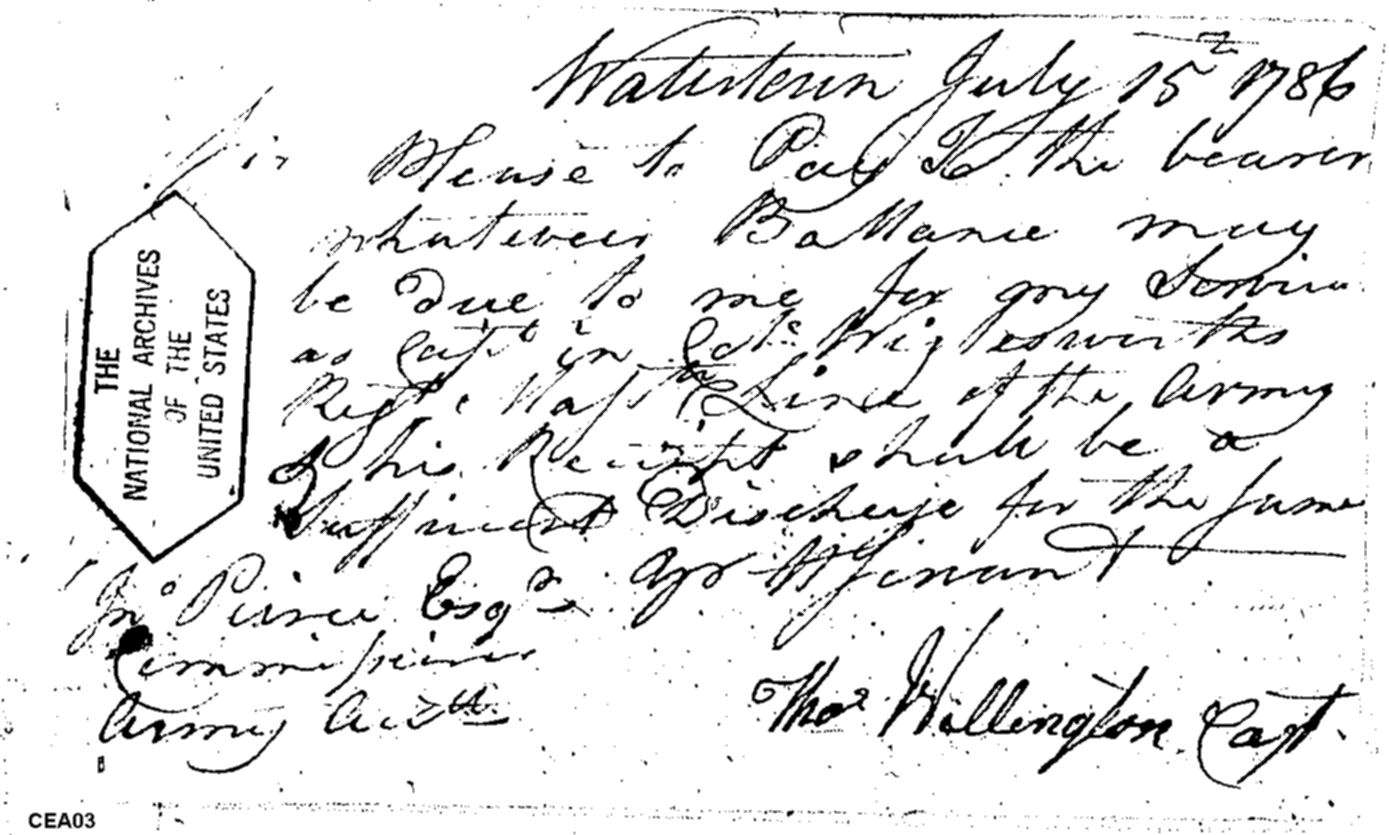 Watertown July 15th 1786
Sir Please to Pay To the bearer
whatever Ballance may
be due to me for my Service
as Capt. in Cols. Wiglesworths
Regt. Line of the Army
& his Receipt shall be a
sufficient Discharge for the same
Jno Peirce Esqr.
Commissioner
Army Accts.
Thos Wellington Capt.
THE
NATIONAL ARCHIVES
OF THE
UNITED STATES
CEA03